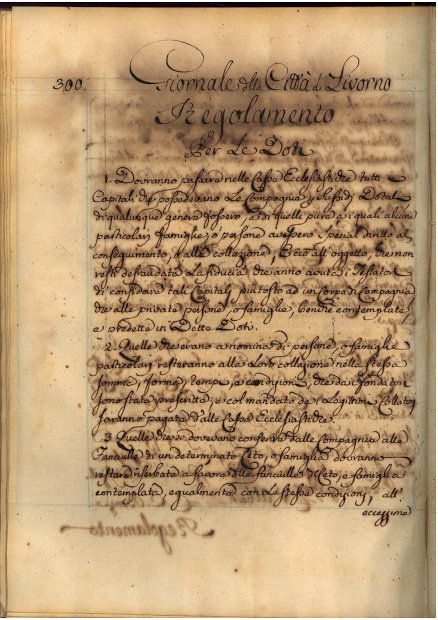 300.
Giornale della Città di Livorno
Regolamento
Per Le Doti
1. Dovranno passare nelle Casse Ecclesiastiche tutti
Capitali che possedevano Le Compagnie, ò sussidj Dotali
di qualunque genere fossero, e di quelle pure a i quali alcune
particolari famiglie, ò persone avessero special diritto al
conseguimento, ò alla collazione; E ciò all'oggetto, che non
resti defraudata La fiducia che anno avuta i Testatori
di confidare tali Capitali piutosto ad un Corpo di Compagnia
che alle private persone, ò famiglie, benche contemplate
e predette in Dette Doti.
2. Quelle che erano a nomina di persone, ò famiglie
particolari resteranno alla Loro collazione nella stessa
somma, forma, tempi, e condizioni, che da i fondatori
sono state prescritte, e col mandato de i Legittimi Collatori
saranno pagate dalle Casse Ecclesiastiche.
3. Quelle che si dovevano conferire dalle Compagnie alle
Fanciulle di un determinato Ceto, ò famiglia dovranno
restare riserbate a favore delle fanciulle di Ceto, e famiglia
contemplata, egualmente con Le stesse condizioni, all'
eccezzione
Regolamento